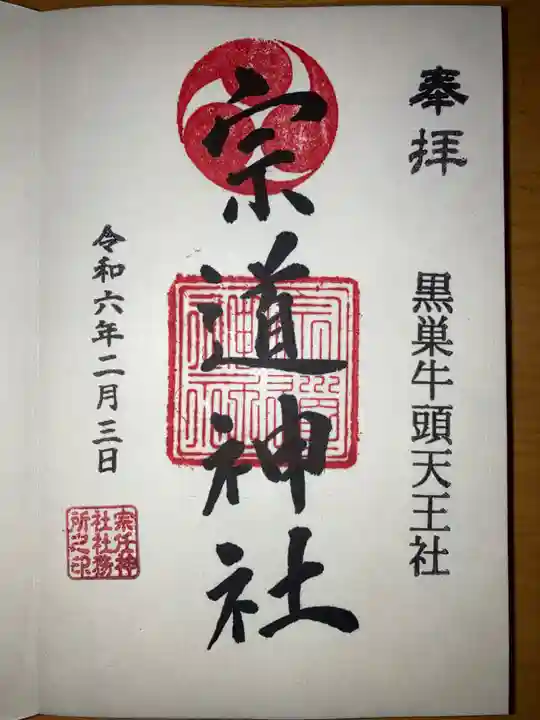 奉拝
黒巣牛頭天王社
宗道神社
令和六年二月三日
宗任神
社社務
所之印